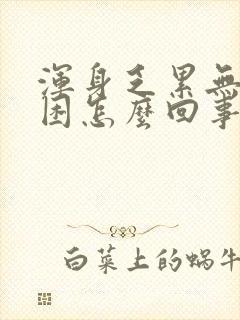 渾身乏累無
困怎麼回事
白菜上的蝸牛